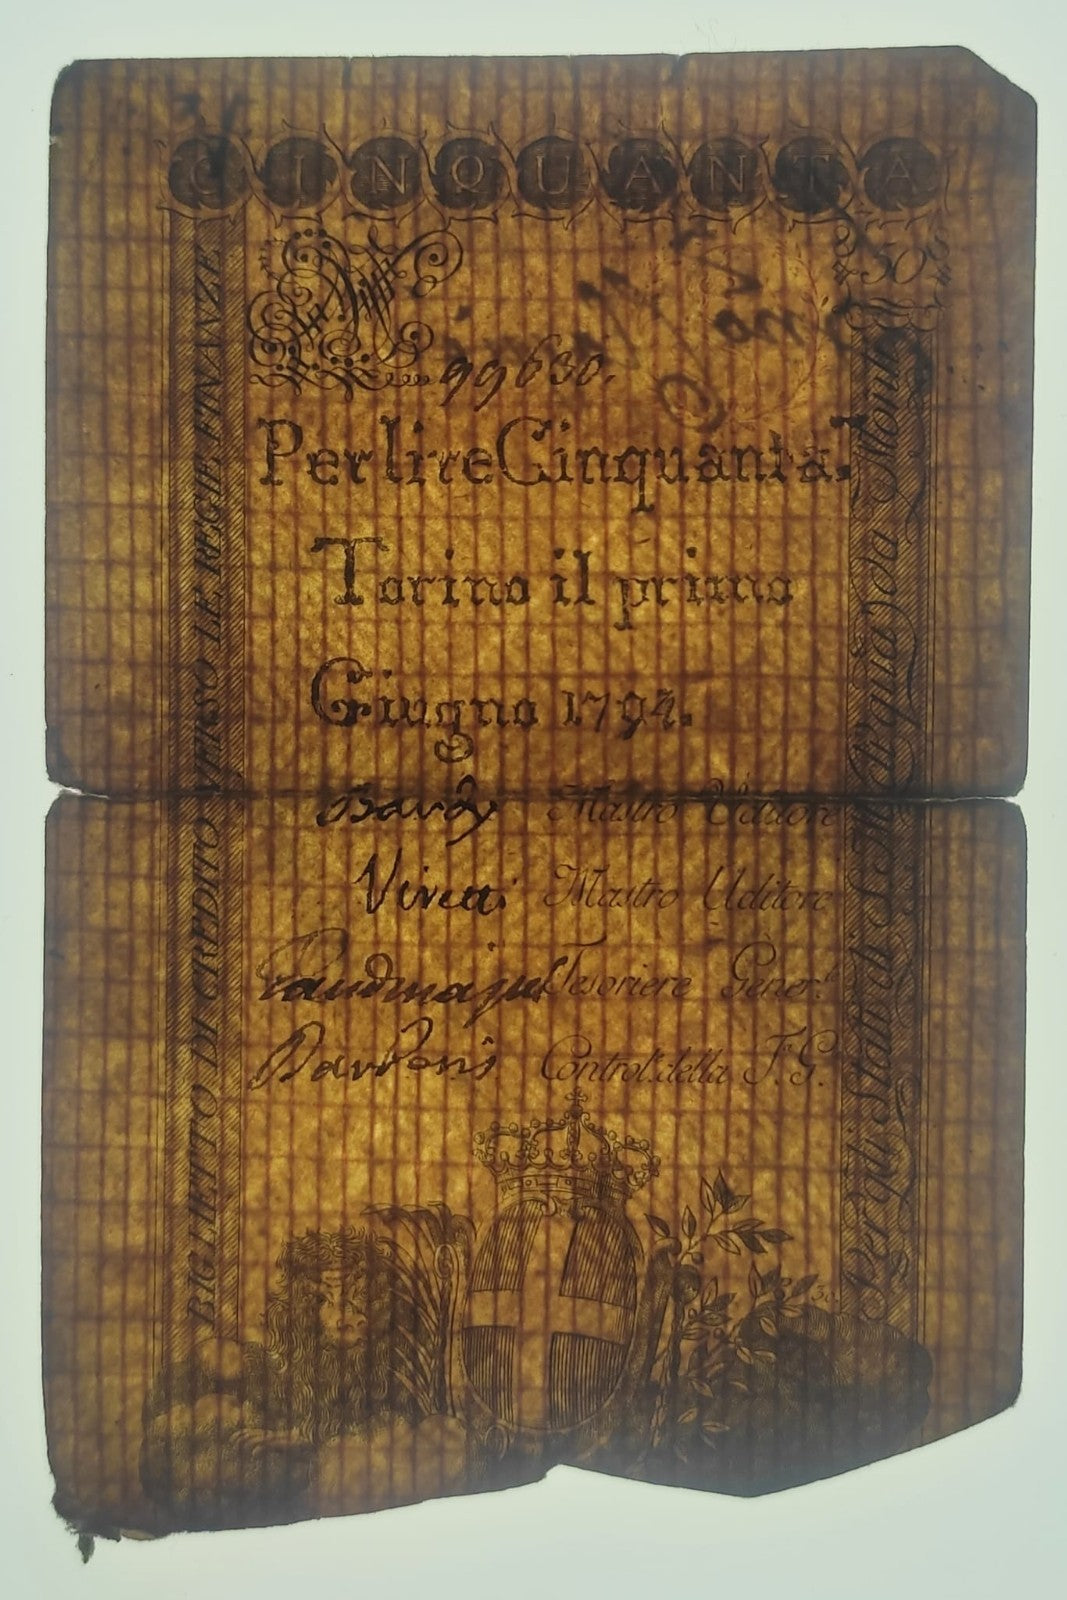 CINQUANTA
50
99630.
Per lire Cinquanta.
Torino il primo
Giugno 1794.
Mastro Uditore
Vivetti Mastro Uditore
Tesoriere Gener.l
Control.e della F.e G.
BIGLIETTO DI CREDITO VERSO LE REGIE FINANZE
Per gli Stati di S. M. di quà da Monti